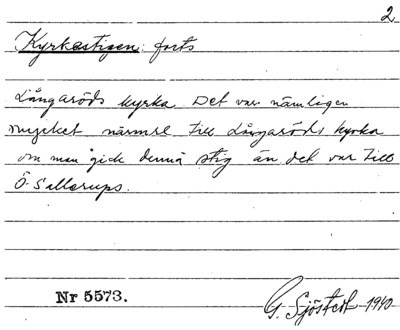 2
Kyrkostigen: forts
Långaröds kyrka. Det var nämligen
mycket närmre till Långaröds kyrka
om man gick denna stig än det var till
Ö. Sallerups.
Nr 5573.
G. Sjöstedt 1940